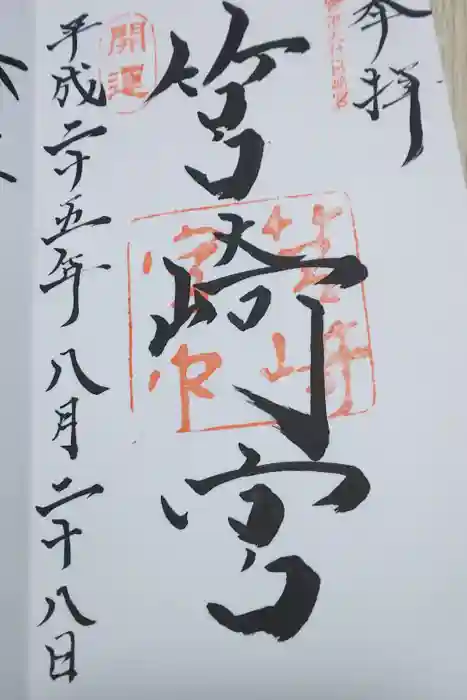 奉拝
筥崎宮
筥崎
宮印
開運
平成二十五年八月二十八日